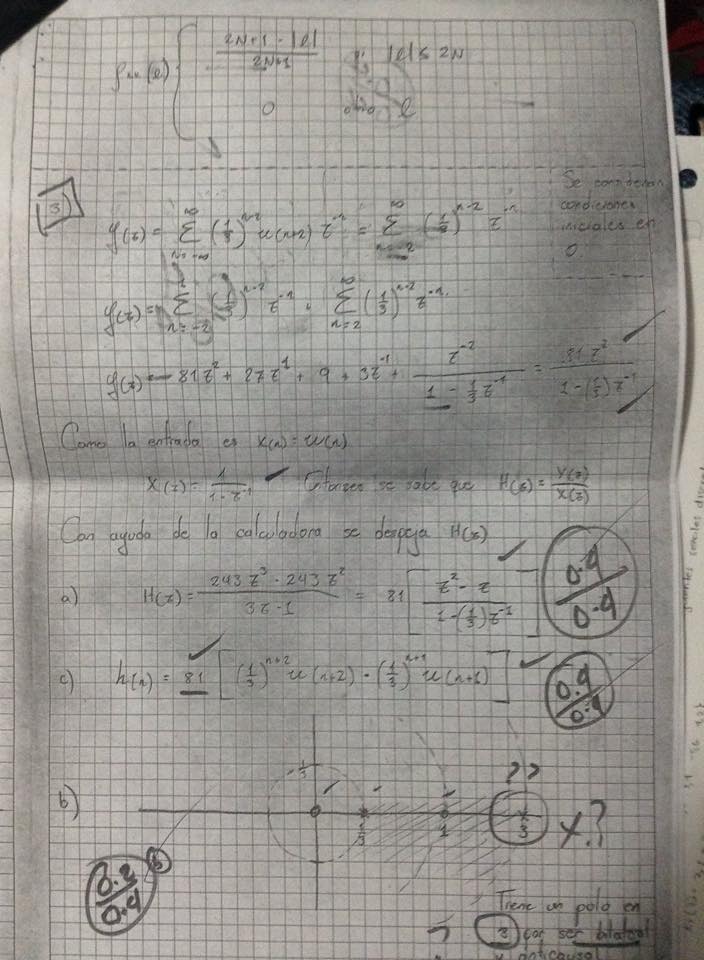 2N+1 - |l|
2N+1
|l| ≤ 2N
0 l
3)
Y(z) = ∑_{n=-∞}^{∞} (1/3)^{n-2} u(n+2) z^{-n} = ∑_{n=-2}^{∞} (1/3)^{n-2} z^{-n}
Se consideran
condiciones
iniciales en
0.
∑_{n=2}^{∞} (1/3)^{n-2} z^{-n}
Y(z) = 81z^2 + 27z^1 + 9 + 3z^{-1} + z^{-2}/(1 - 1/3 z^{-1}) = 81z^2/(1-(1/3)z^{-1})
Como la entrada es x(n) = u(n)
X(z) = 1/(1-z^{-1}) Entonces se sabe que H(z) = Y(z)/X(z)
Con ayuda de la calculadora se despeja H(z)
a) H(z) = (243z^3 - 243z^2)/(3z-1) = 81 [(z^2 - z)/(1-(1/3)z^{-1})] 0.4/0.4
c) h(n) = 81 [(1/3)^{n+2} u(n+2) - (1/3)^{n+1} u(n+1)] 0.4/0.4
b) -1/3 1/3 1 x 3 ?? x?
0.3/0.4
Tiene un polo en
3 por ser bilateral
y anticausal